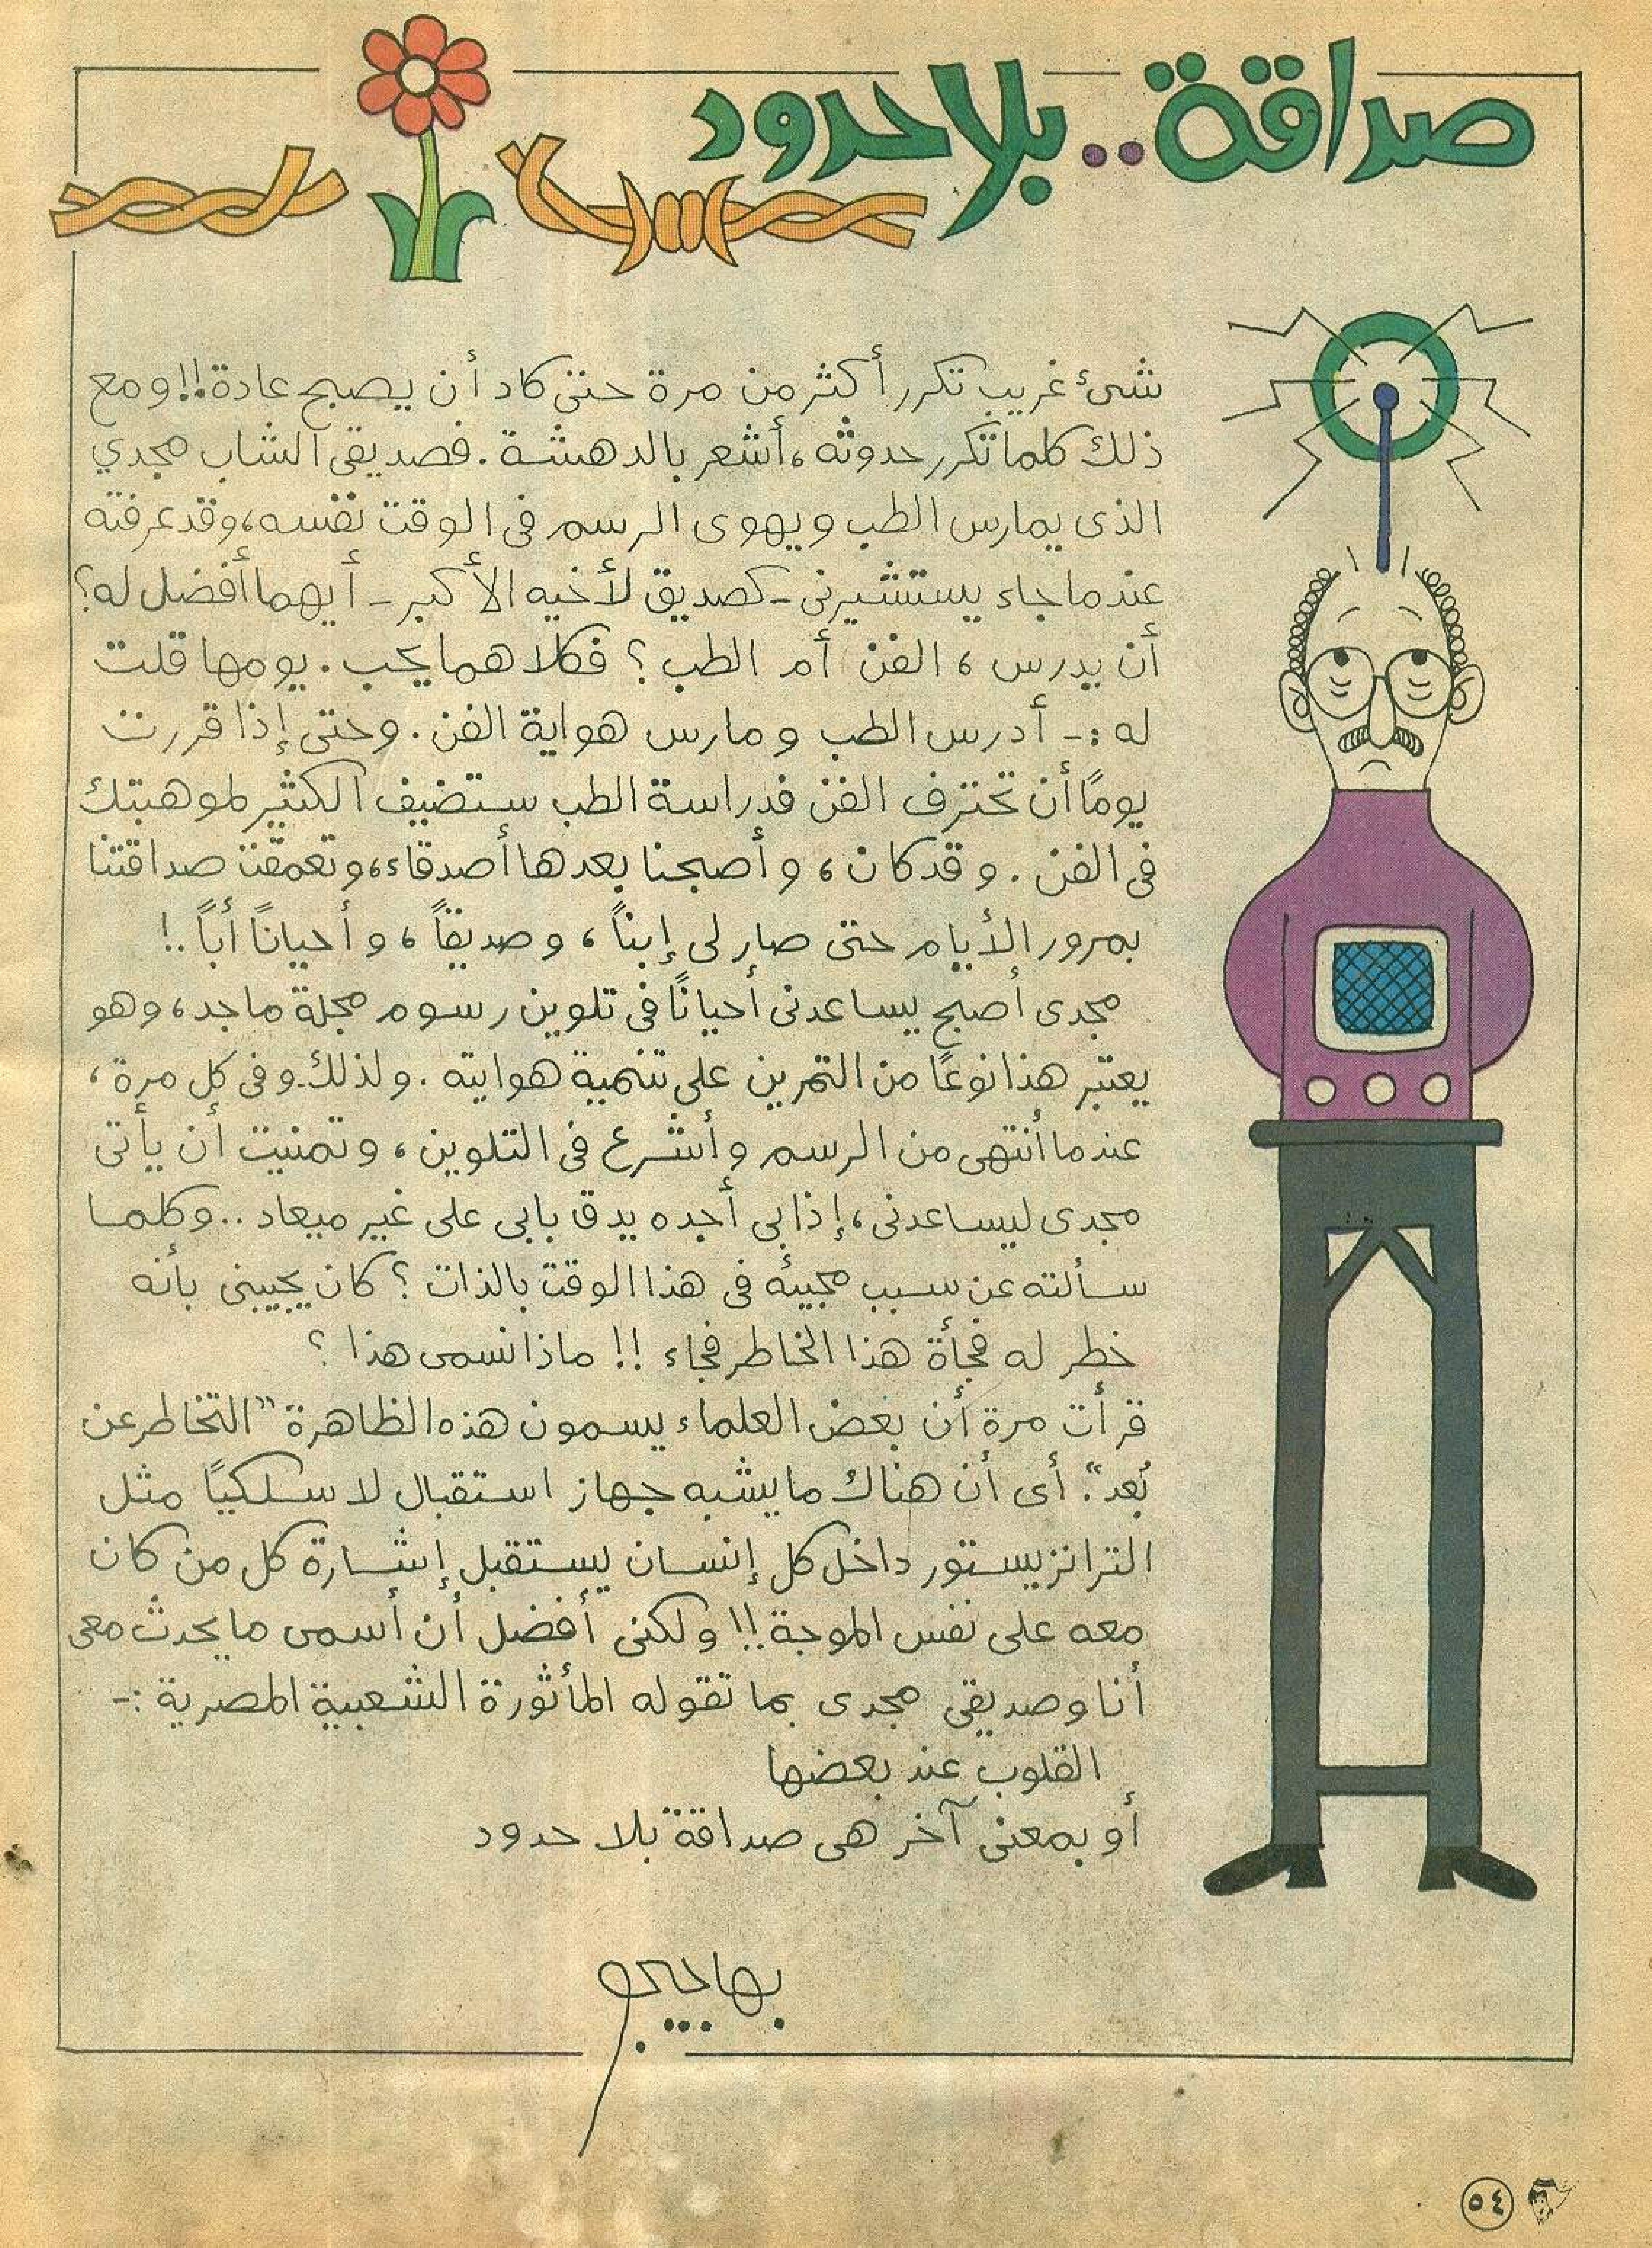 صداقة..بلا حدود
شئ غريب تكرر أكثر من مرة حتى كاد أن يصبح عادة!! ومع
ذلك كلما تكرر حدوثه، أشعر بالدهشة. فصديقى الشاب مجدي
الذى يمارس الطب ويهوى الرسم فى الوقت نفسه، وقد عرفته
عندما جاء يستشيرنى - كصديق لأخيه الأكبر - أيهما أفضل له؟
أن يدرس، الفن أم الطب؟ فكلاهما يحب. يومها قلت
له :- أدرس الطب ومارس هواية الفن. وحتى إذا قررت
يومًا أن تحترف الفن فدراسة الطب ستضيف الكثير لموهبتك
فى الفن. وقد كان، وأصبحنا بعدها أصدقاء، وتعمقت صداقتنا
بمرور الأيام حتى صار لى إبناً، وصديقاً، وأحيانًا أباً..!
مجدى أصبح يساعدنى أحيانًا فى تلوين رسوم مجلة ماجد، وهو
يعتبر هذا نوعًا من التمرين على تنمية هوايته. ولذلك.وفى كل مرة،
عندما أنتهى من الرسم وأشرع فى التلوين، وتمنيت أن يأتى
مجدى ليساعدنى، إذا بى أجده يدق بابى على غير ميعاد .. وكلما
سألته عن سبب مجيئه فى هذا الوقت بالذات؟ كان يجيبنى بأنه
خطر له فجأة هذا الخاطر فجاء!! ماذا نسمى هذا؟
قرأت مرة أن بعض العلماء يسمون هذه الظاهرة "التخاطر عن
بُعد". أى أن هناك ما يشبه جهاز استقبال لا سلكيًا مثل
الترانزيستور داخل كل إنسان يستقبل إشارة كل من كان
معه على نفس الموجة!! ولكنى أفضل أن أسمى ما يحدث معى
أنا وصديقى مجدى بما تقوله المأثورة الشعبية المصرية :-
القلوب عند بعضها
أو بمعنى آخر هى صداقة بلا حدود
بهاجيجو
٥٤